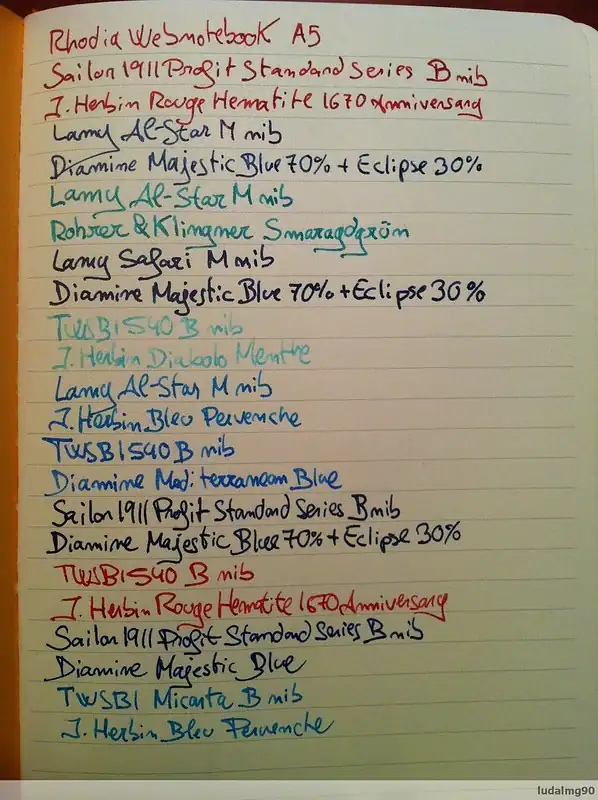 Rhodia Webnotebook A5
Sailor 1911 Profit Standard Series B nib
J. Herbin Rouge Hematite 1670 Anniversary
Lamy Al-Star M nib
Diamine Majestic Blue 70% + Eclipse 30%
Lamy Al-Star M nib
Rohrer & Klingner Smaragdgrün
Lamy Safari M nib
Diamine Majestic Blue 70% + Eclipse 30%
TWSBI 540 B nib
J. Herbin Diabolo Menthe
Lamy Al-Star M nib
J. Herbin Bleu Pervenche
TWSBI 540 B nib
Diamine Mediterranean Blue
Sailor 1911 Profit Standard Series B nib
Diamine Majestic Blue 70% + Eclipse 30%
TWSBI 540 B nib
J. Herbin Rouge Hematite 1670 Anniversary
Sailor 1911 Profit Standard Series B nib
Diamine Majestic Blue
TWSBI Micarta B nib
J. Herbin Bleu Pervenche
ludalmg90